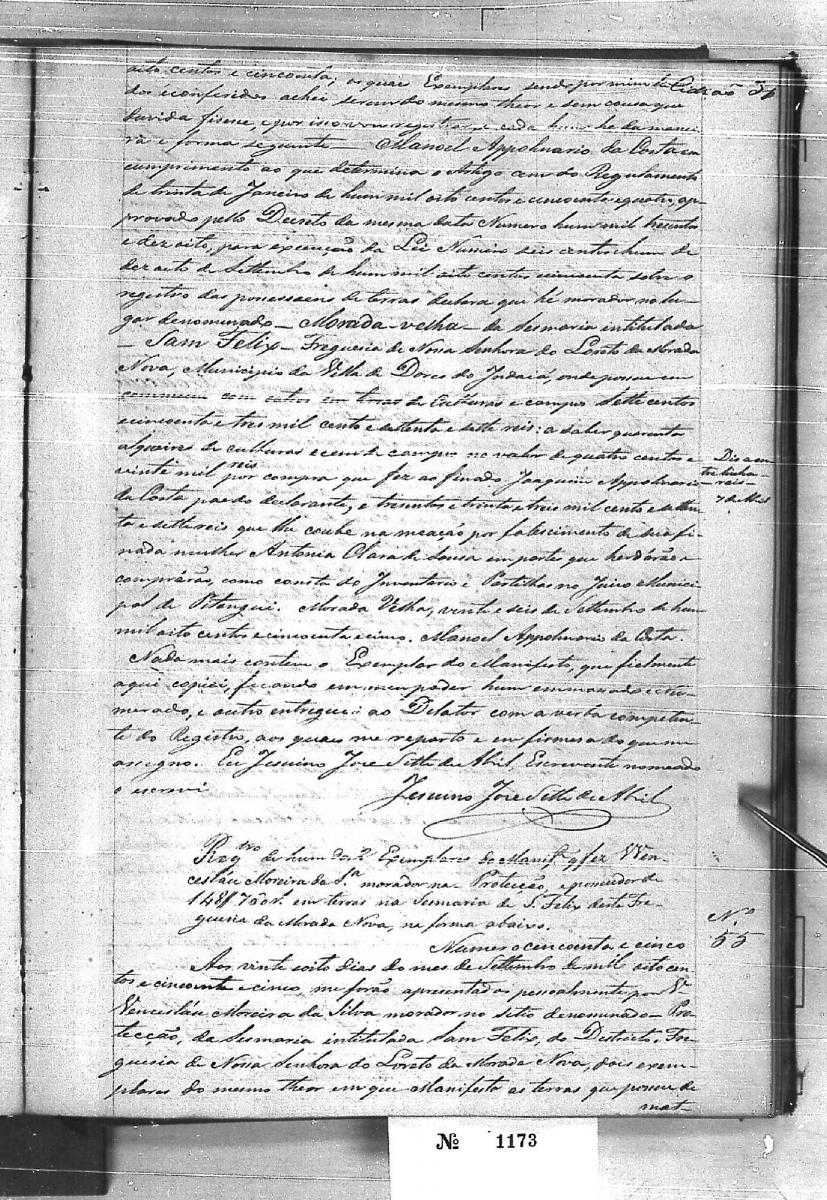 oito centos e cincoenta; os quais Exemplares sendo por mim
dos e conferidos achei serem do mesmo theor e sem cousa que
duvida fisesse, e por isso vou registrar e cada hum he da manei-
ra e forma seguinte — Manoel Appolinario da Costa em
cumprimento ao que determina o Artigo cem do Regulamento
de trinta de Janeiro de hum mil oito centos e cincoenta e quatro, ap-
provado pello Decreto da mesma data Numero hum mil tresentos
e dez oito, para execução da Lei Numero seis centos e hum de
dez oito de Settembro de hum mil oito centos cincoenta sobre o
registro das possessoens de terras declara que hé morador no lu-
gar denominado — Morada-velha — da Sesmaria intitulada
— Sam Felix — Freguesia de Nossa Senhora do Loreto da Morada
Nova, Municipio da Villa de Dores do Indaiá, onde possue em
commum com outros em terras de Culturas e campos sette centos
cincoenta e tres mil cento e settenta e sette reis: a saber quarenta
alqueires de culturas e cem de campos no valor de quatro centos e
vinte mil reis por compra que fez ao finado Joaquim Appolinario
da Costa pae do declarante, e tresentos e trinta e tres mil cento e setten-
ta e sette reis que lhe coube na meação por falescimento de sua fi-
nada mulher Antonia Clara de Sousa em parte que herdárão e
comprárão, como consta do Inventario e Partilhas no Juiso Munici-
pal de Pitangui. Morada Velha, vinte e seis de Settembro de hum
mil oito centos e cincoenta e cinco. Manoel Appolinario da Costa.
Nada mais contem o Exemplar do Manifesto, que fielmente
aqui copiei, ficando em meu poder hum emmassado e nu-
merado, e outro entreguei ao Dilator com a verba competen-
te do Registro, aos quais me reporto e em firmesa do que me
assigno. Eu Jesuino Jose Sette de Abril Escrevente nomeado
o escrevi
Jesuino Jose Sette de Abril
Regtro de hum dos 2 Exemplares do Manif.º q fez Wen-
cesláu Moreira da S.ª morador na Protecção, e possuidor de
em terras na Sesmaria de S. Felix deste Fre-
guesia da Morada Nova, na forma abaixo.
Nº
55
Numero cencoenta e cinco
Aos vinte e oito dias do mes de Settembro de mil oito cen-
tos e cincoente e cinco, me forão apresentados pessoalmente por
Venceslau Moreira da Silva morador no sitio denominado — Pro-
tecção, da Sesmaria intitulada Sam Felix, do Districto, Fre-
guesia de Nossa Senhora do Loreto da Morada Nova, dois exem-
plares do mesmo theor em que Manifesta as terras que possue de
mat-
Nº 1173